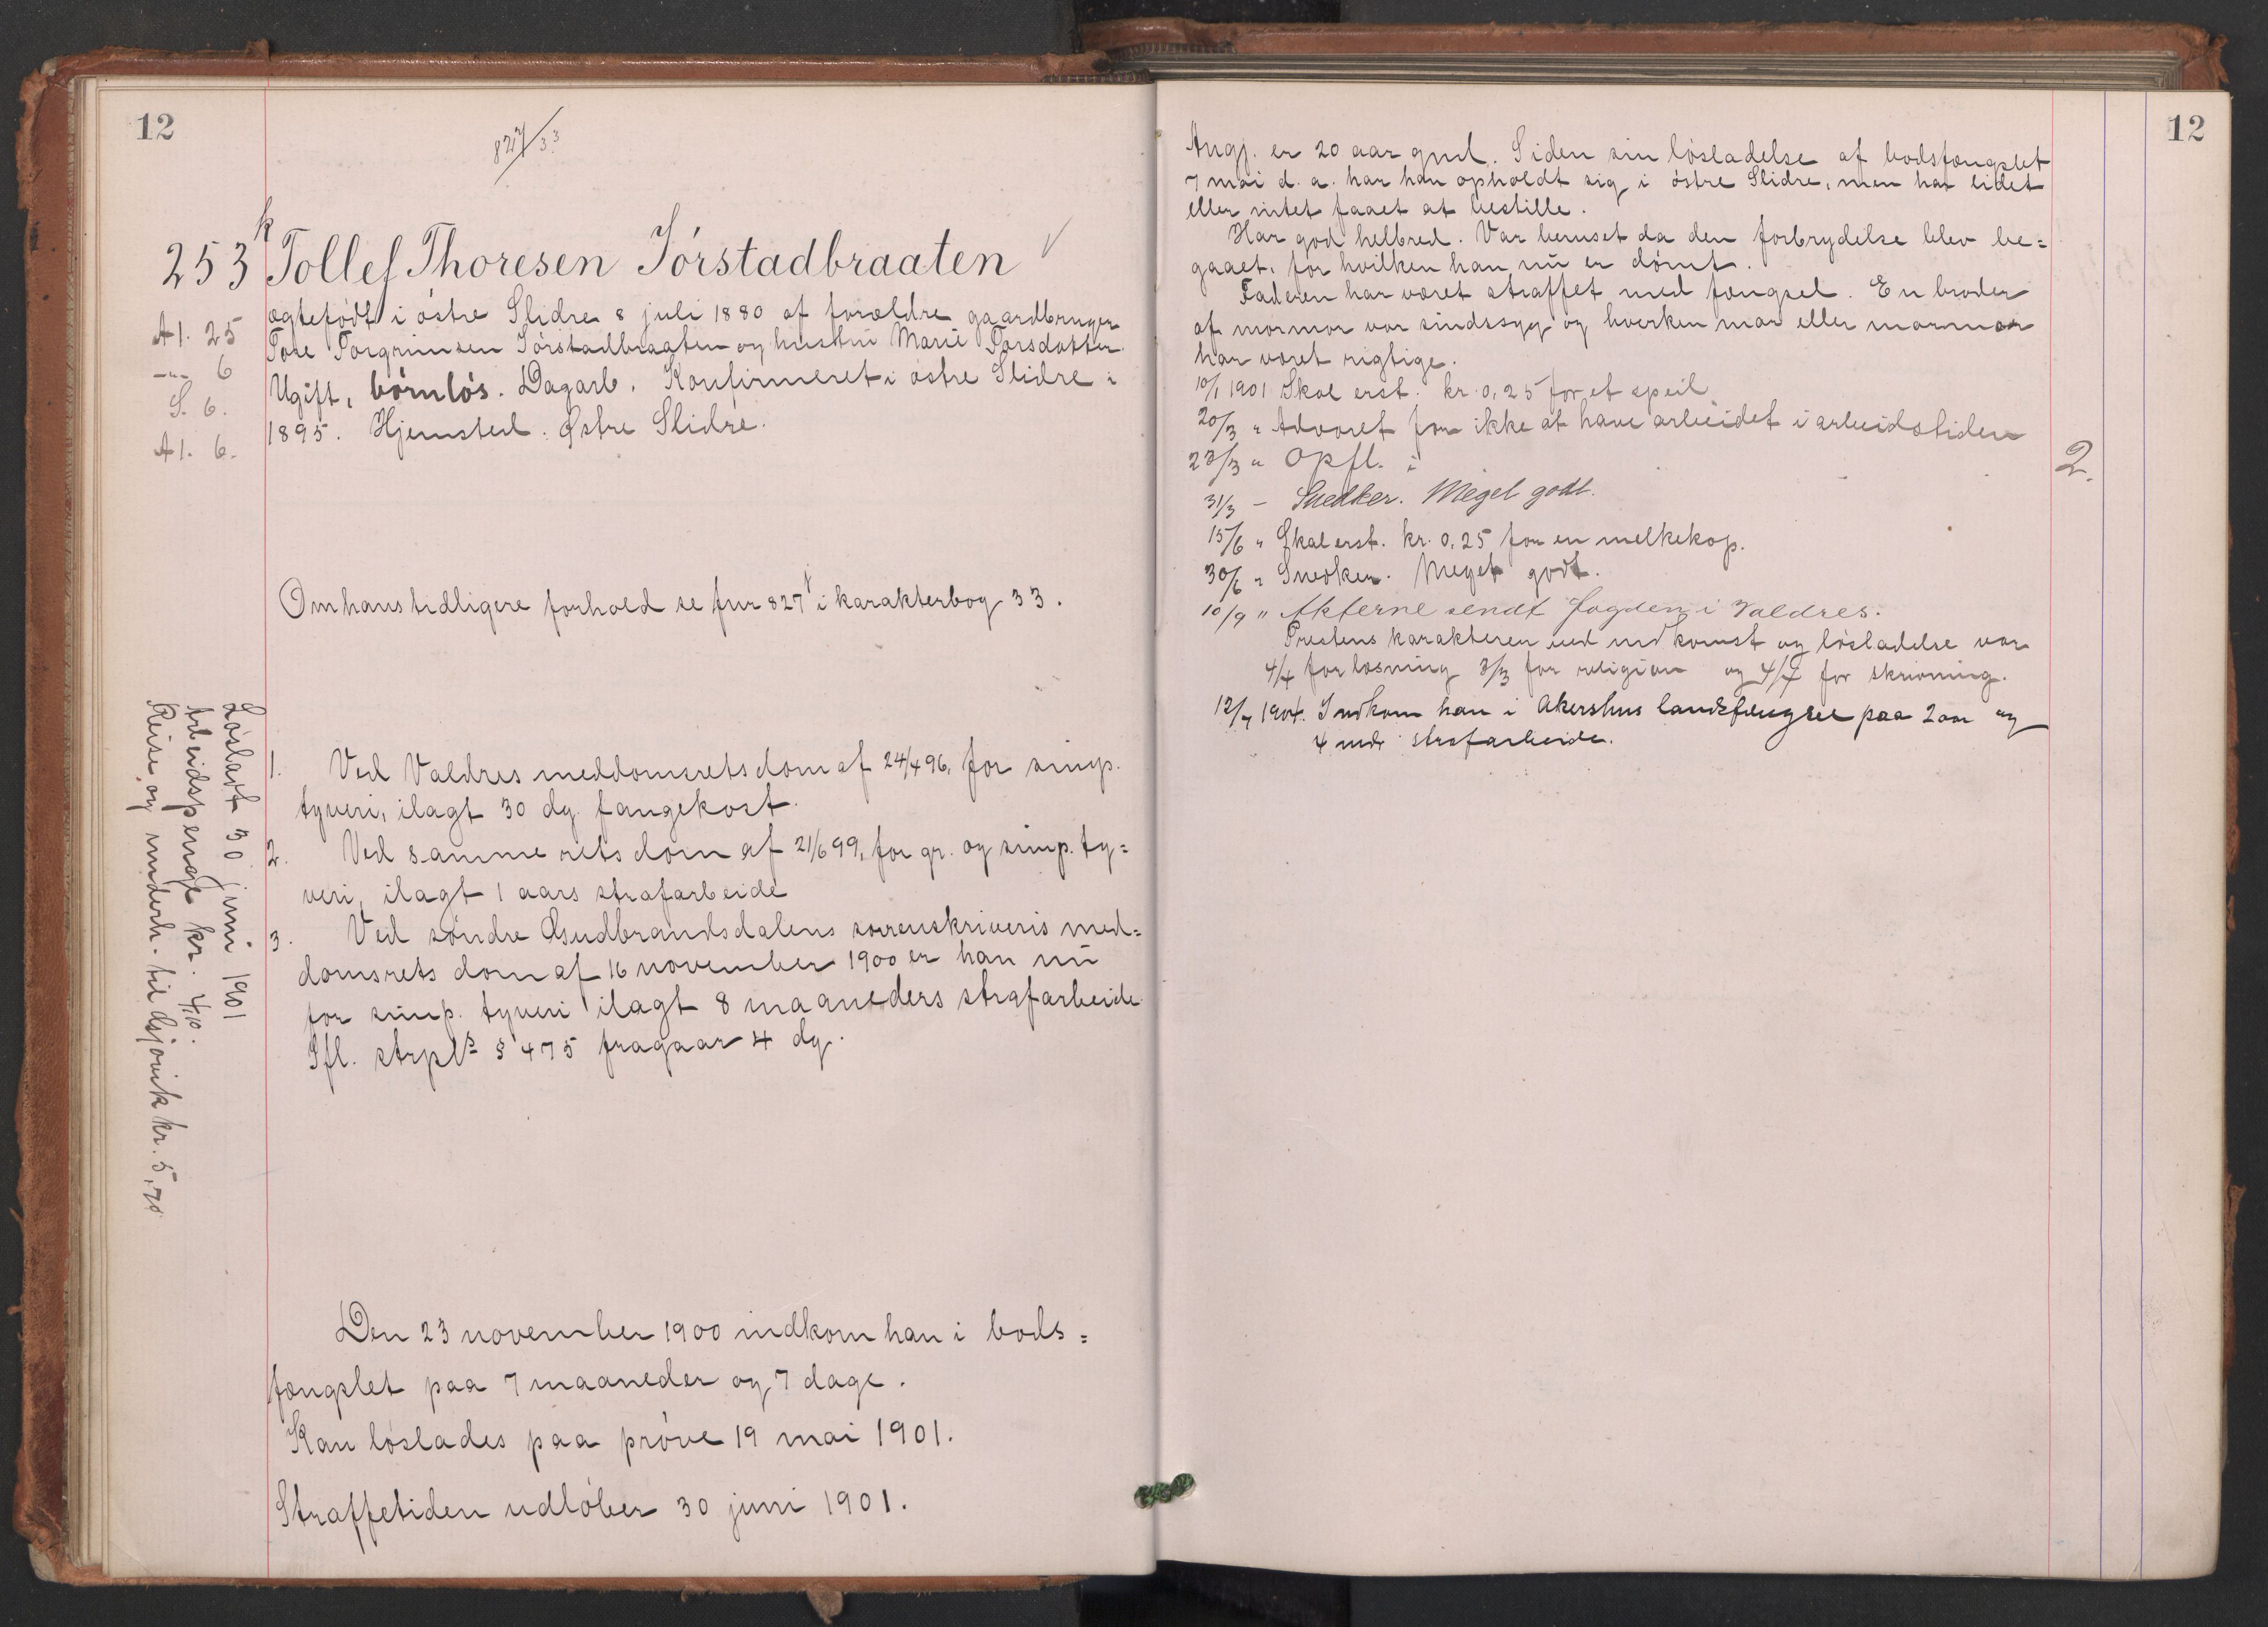 12
827/33
k
253 Tollef Thoresen Jórstadbraaten
A1. 25
-"- 6
S. 6.
A1. 6.
ægtefödt i östre Slidre 8 juli 1880 af forældre gaardbruger
Tore Torgrimsen Jörstadbraaten og hustru Marie Torsdatter.
Ugift, börnlös. Dagarb. Konfirmeret i östre Slidre i
1895. Hjemsted: Östre Slidre.
Om hans tidligere forhold se fnr 827 i karakterbog 33.
1. Ved Valdres meddomsrets dom af 24/4 96, for simp.
tyveri, ilagt 30 dg. fangekost.
2. Ved samme rets dom af 21/6 99, for gr. og simp. ty=
veri, ilagt 1 aars strafarbeide
3. Ved söndre Gudbrandsdalens sorenskriveris med=
domsrets dom af 16 november 1900 er han nu
for simp. tyveri ilagt 8 maaneders strafarbeide
Ifl. strpls § 475 fragaar 4 dg.
Lösladt 30 juni 1901
Arbeidspenge kr. 4,10.
Reise og underh. til Gjövik kr. 5,70
Den 23 november 1900 indkom han i bods=
fængslet paa 7 maaneder og 7 dage.
Kan löslades paa pröve 19 mai 1901.
Straffetiden udlöber 30 juni 1901.
12
Angj. er 20 aar gml. Siden sin lösladelse af bodsfængslet
7 mai d. a. har han opholdt sig i östre Slidre, men har lidet
eller intet faaet at bestille.
Har god helbred. Var beruset da den forbrydelse blev be=
gaaet, for hvilken han nu er dömt.
Faderen har været straffet med fængsel. En broder
af mormor var sindssyg og hverken mor eller mormor
har været rigtige.
10/1 1901 Skal erst. kr. 0,25 for et speil
20/3 " Advaret for ikke at have arbeidet i arbeidstiden
23/3 " Opfl. i 2.
31/3 - Snedker. Meget godt.
15/6 " Skal erst. kr. 0,25 for en melkekop.
30/6 " Snedker. Meget godt.
10/9 " Akterne sendt fogden i Valdres.
Prestens karakterer ved indkomst og lösladelse var
4/4 for læsning 3/3 for religion og 4/4 for skrivning.
12/7 1904. Indkom han i Akershus landsfængsel paa 2 aar og
4 mdr strafarbeide.